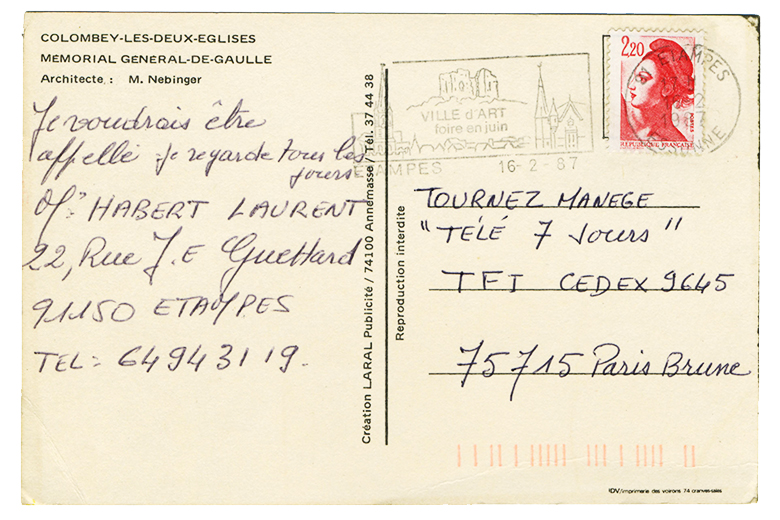 COLOMBEY-LES-DEUX-EGLISES
MÉMORIAL GÉNÉRAL-DE-GAULLE
Architecte : M. Nebinger
Je voudrais être
appellé. Je regarde tous les
jours
Mr HABERT LAURENT
22, Rue J.E Guettard
91150 ETAMPES
TEL = 64 94 31 19.
Création LARAL Publicité / 74100 Annemasse / Tél. 37 44 38
Reproduction interdite
VILLE d'ART
foire en juin
ETAMPES 16-2-87
2,20
POSTES
REPUBLIQUE FRANÇAISE
91 ETAMPES
1987
ESSONNE
TOURNEZ MANEGE
"TÉLÉ 7 Jours"
TF1 CEDEX 9645
75715 Paris Brune
IDV/imprimerie des voirons 74 cranves-sales